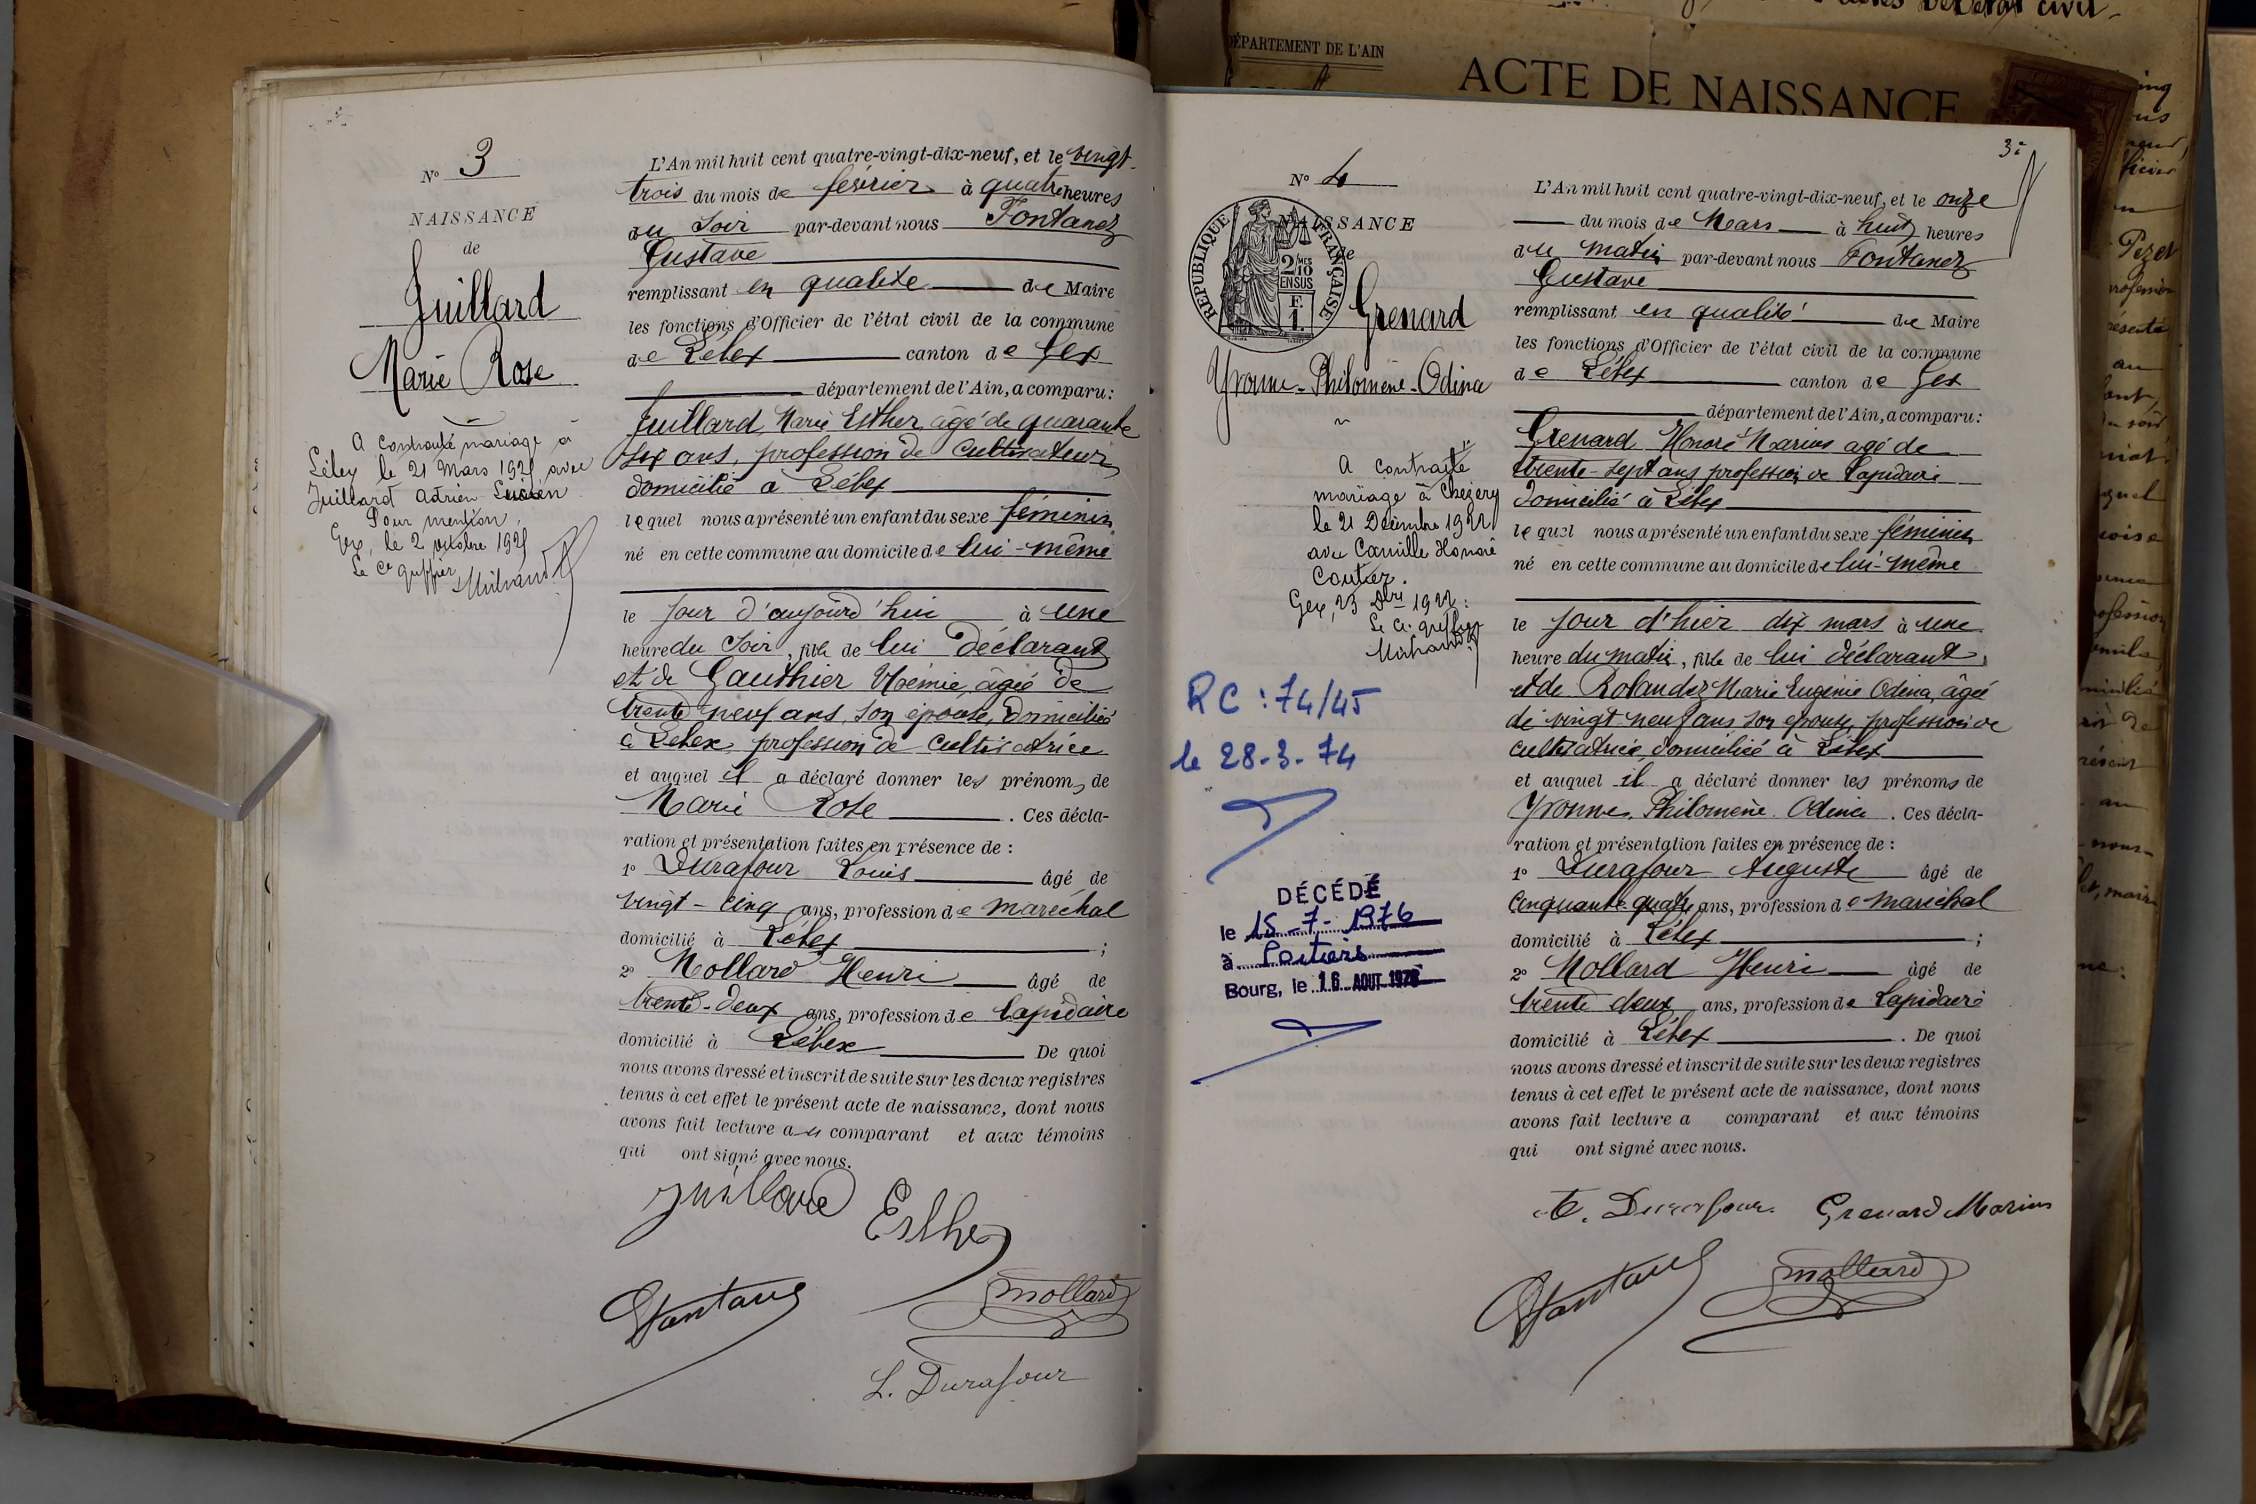 N° 3
NAISSANCE
de
Juillard
Marie Rose
A contracté mariage à
Lélex le 21 Mars 1925 avec
Juillard Adrien Lucien
Pour mention,
Gex, le 2 octobre 1925
Le Cs greffier
L'An mil huit cent quatre-vingt-dix-neuf, et le vingt-
trois du mois de février à quatre heures
du soir par-devant nous Fontanez
Gustave
remplissant en qualité de Maire
les fonctions d'Officier de l'état civil de la commune
de Lélex canton de Gex
département de l'Ain, a comparu:
Juillard Marie Esther, âgé de quarante
six ans, profession de Cultivateur
domicilié à Lélex
lequel nous a présenté un enfant du sexe féminin
né en cette commune au domicile de lui-même
le jour d'aujourd'hui à une
heure du soir, fille de lui déclarant
et de Gauthier Noémie, âgée de
trente neuf ans, son épouse, domiciliée
à Lélex, profession de cultivatrice
et auquel il a déclaré donner les prénoms de
Marie Rose. Ces décla-
ration et présentation faites en présence de :
1° Durafour Louis âgé de
vingt-cinq ans, profession de maréchal
domicilié à Lélex ;
2° Mollard Henri âgé de
trente-deux ans, profession de lapidaire
domicilié à Lélex De quoi
nous avons dressé et inscrit de suite sur les deux registres
tenus à cet effet le présent acte de naissance, dont nous
avons fait lecture au comparant et aux témoins
qui ont signé avec nous.
Juillard Esther
Mollard
L. Durafour
DÉPARTEMENT DE L'AIN
ACTE DE NAISSANCE
N° 4
NAISSANCE
de
RÉPUBLIQUE FRANÇAISE
2/10
MES
EN SUS
F.
1.
Grenard
Yvonne-Philomène-Odina
A contracté
mariage à Chézery
le 21 Décembre 1922
avec Camille Honoré
Coutier.
Gex, 23 Dbre 1922:
Le Cs. greffier
RC : 74/45
le 28-3-74
DÉCÉDÉ
le 15-7-1976
à Poitiers
Bourg, le 16 AOUT 1976
L'An mil huit cent quatre-vingt-dix-neuf, et le onze
du mois de Mars à huit heures
du matin par-devant nous Fontanez
Gustave
remplissant en qualité de Maire
les fonctions d'Officier de l'état civil de la commune
de Lélex canton de Gex
département de l'Ain, a comparu:
Grenard Honoré Marius agé de
trente-sept ans profession de Lapidaire
domicilié à Lélex
lequel nous a présenté un enfant du sexe féminin
né en cette commune au domicile de lui-même
le jour d'hier dix mars à une
heure du matin, fille de lui déclarant,
et de Rolandez Marie Eugénie Odina, âgée
de vingt neuf ans son épouse, profession de
cultivatrice, domiciliée à Lélex
et auquel il a déclaré donner les prénoms de
Yvonne, Philomène Odina. Ces décla-
ration et présentation faites en présence de :
1° Durafour Auguste âgé de
Cinquante-quatre ans, profession de maréchal
domicilié à Lélex ;
2° Mollard Henri âgé de
trente deux ans, profession de Lapidaire
domicilié à Lélex. De quoi
nous avons dressé et inscrit de suite sur les deux registres
tenus à cet effet le présent acte de naissance, dont nous
avons fait lecture a comparant et aux témoins
qui ont signé avec nous.
Durafour. Grenard Marius
Mollard